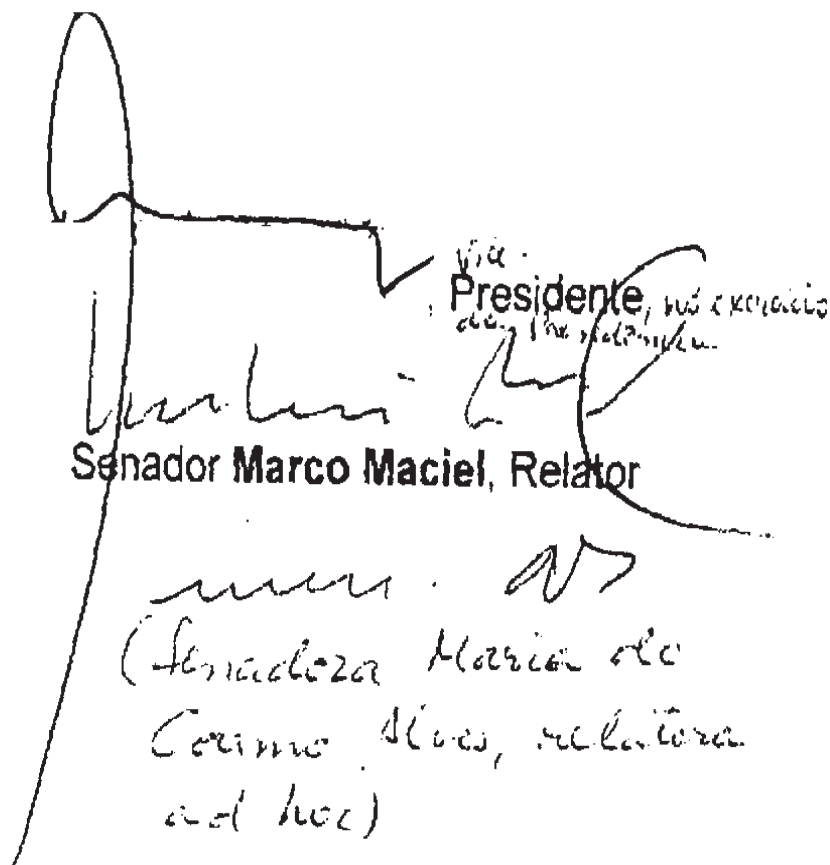 Vice-
Presidente, no exercício
da Presidência.
Senador Marco Maciel, Relator
(Senadora Maria do
Carmo Alves, relatora
ad hoc)